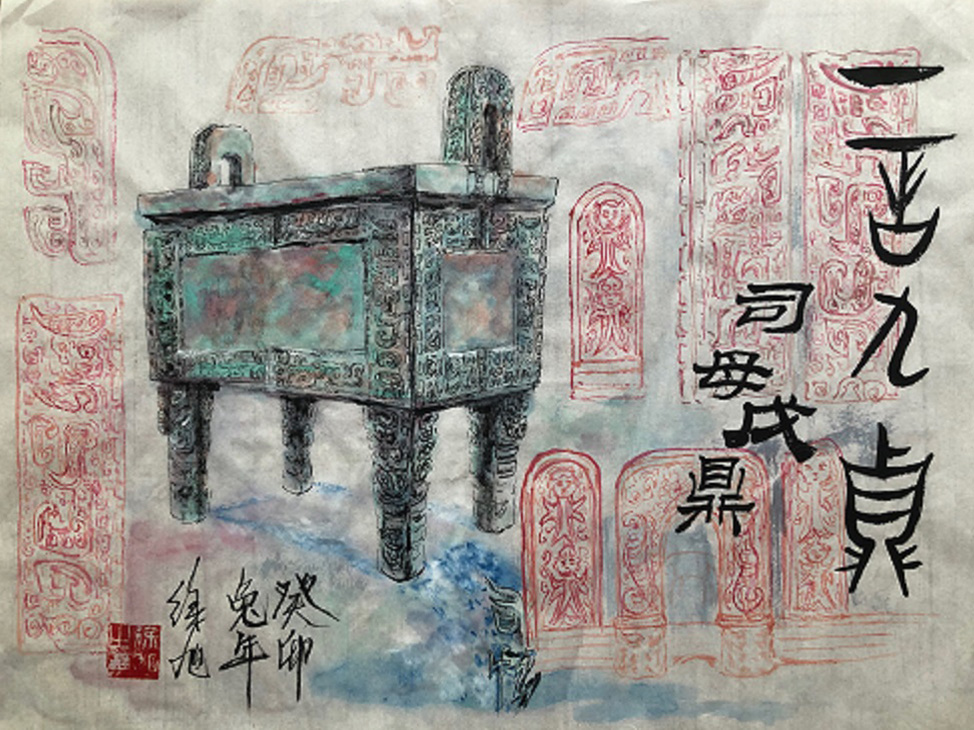 一言九鼎
司母戊鼎
癸卯
兔年
徐旭